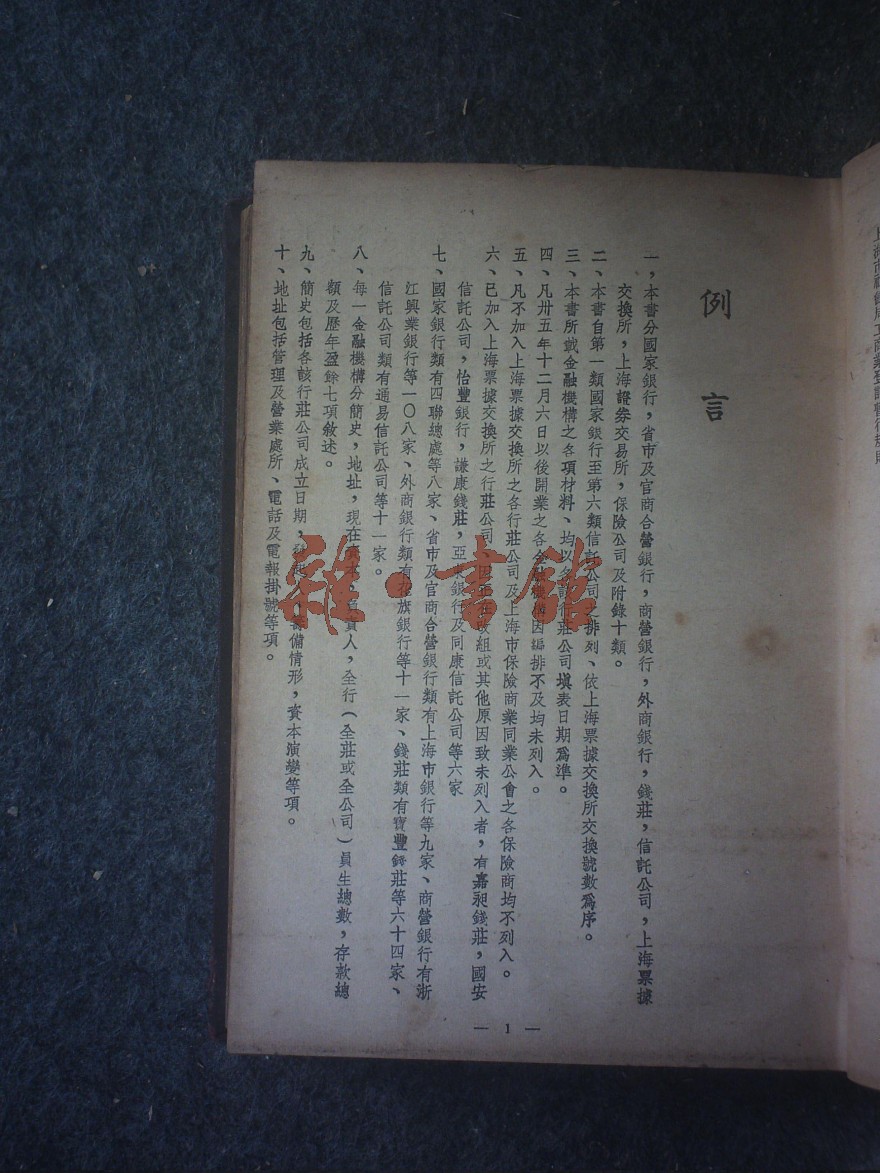 例言
一，本書分國家銀行，省市及官商合營銀行，商營銀行，外商銀行，錢莊，信託公司，上海票據
交換所，上海證券交易所，保險公司及附錄十類。
二、本書自第一類國家銀行至第六類信託公司之排列、依上海票據交換所交換號數爲序。
三、本書所載金融機構之各項材料、均以各該行莊公司塡表日期爲準。
四、凡卅五年十二月六日以後開業之各金融機構因編排不及均未列入。
五、凡不加入上海票據交換所之各行莊公司及上海市保險商業同業公會之各保險商均不列入。
六、已加入上海票據交換所之行莊公司，因改組或其他原因致未列入者，有嘉昶錢莊，國安
信託公司，怡豐銀行，謙康錢莊，亞東銀行及同康信託公司等六家
七、國家銀行類有四聯總處等八家、省市及官商合營銀行類有上海市銀行等九家、商營銀行有浙
江興業銀行等一〇八家、外商銀行類有花旗銀行等十一家、錢莊類有寶豐錢莊等六十四家、
信託公司類有通易信託公司等十一家。
八、每一金融機構分簡史，地址，現在資本，負責人，全行（全莊或全公司）員生總數，存款總
額及歷年盈餘七項敘述。
九、簡史包括各該行莊公司成立日期，發起人，籌備情形，資本演變等項。
十、地址包括管理及營業處所、電話及電報掛號等項。
— 1 —
雜·書館